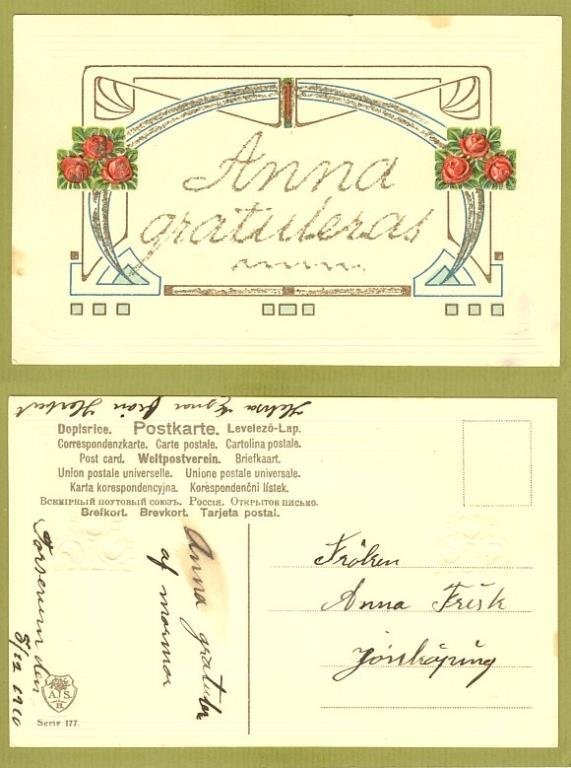 Anna
gratuleras
Helsa Egnar från Herbert
Dopisnice. Postkarte. Levelező-Lap.
Correspondenzkarte. Carte postale. Cartolina postale.
Post card. Weltpostverein. Briefkaart.
Union postale universelle. Unione postale universale.
Karta korespondencyjna. Korespondenční lístek.
Всемірный почтовый союзъ. Россія. Открытое письмо.
Brefkort. Brevkort. Tarjeta postal.
Anna gratuler
af mormor
Forserum den
5/12 1910
A. S.
B.
Serie 177.
Fröken
Anna Frisk
Jönköping